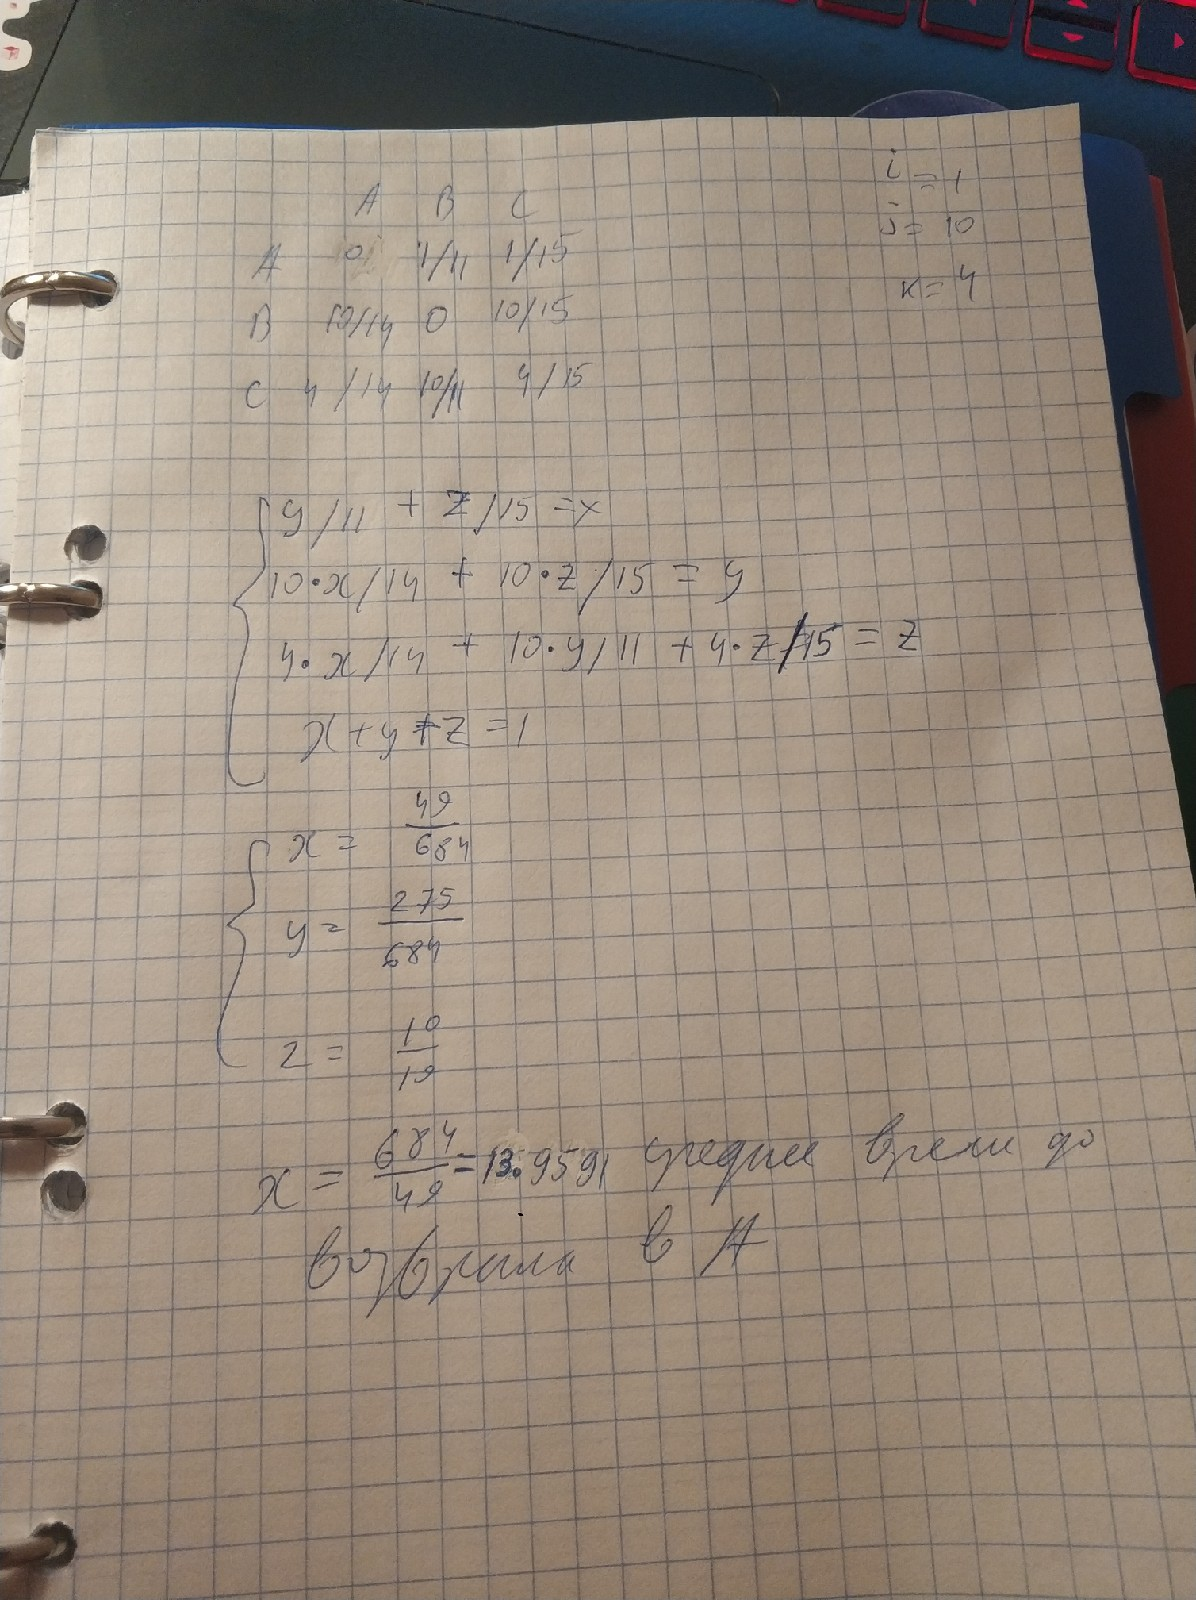 i = 1
j = 10
k = 4
A B C
A 0 1/11 1/15
B 10/14 0 10/15
C 4/14 10/11 4/15
y/11 + z/15 = x
10·x/14 + 10·z/15 = y
4·x/14 + 10·y/11 + 4·z/15 = z
x + y + z = 1
x = 49/684
y = 275/684
z = 10/19
x = 684/49 = 13.9591 среднее время до
возврата в A